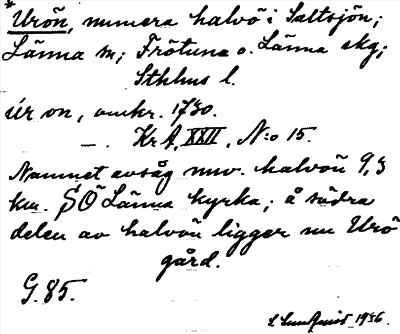 *Urön, numera halvö i Saltsjön;
Länna sn; Frötuna o. Länna skg;
Sthlms l.
úr on, omkr. 1730.
— . KrA, XXII, N:o 15.
Namnet avsåg nuv. halvön 9,3
km. SÖ Länna kyrka; å södra
delen av halvön ligger nu Urö
gård.
G. 85.
S. Sundqvist 1936.